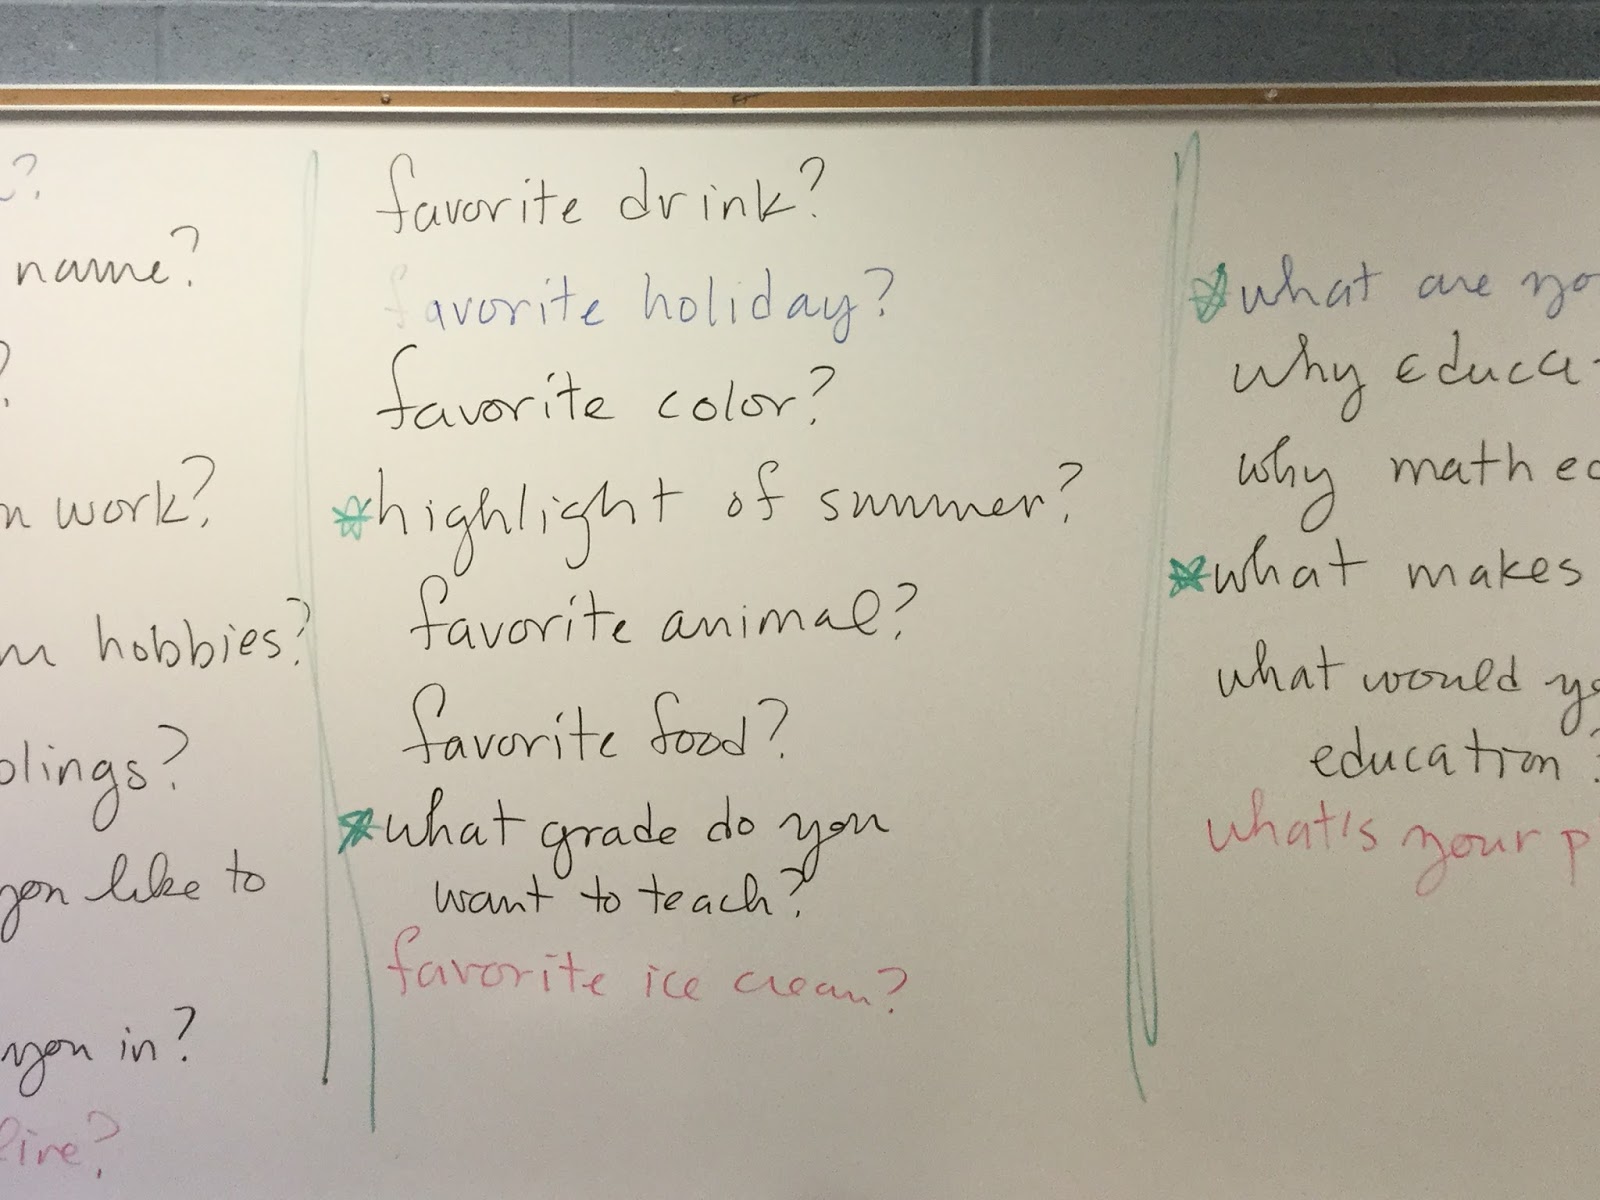 name?
work?
hobbies?
you like to
you in?
favorite drink?
favorite holiday?
favorite color?
highlight of summer?
favorite animal?
favorite food?
what grade do you
want to teach?
favorite ice cream?
what are
why
why math
what makes
what would
education?
what's your